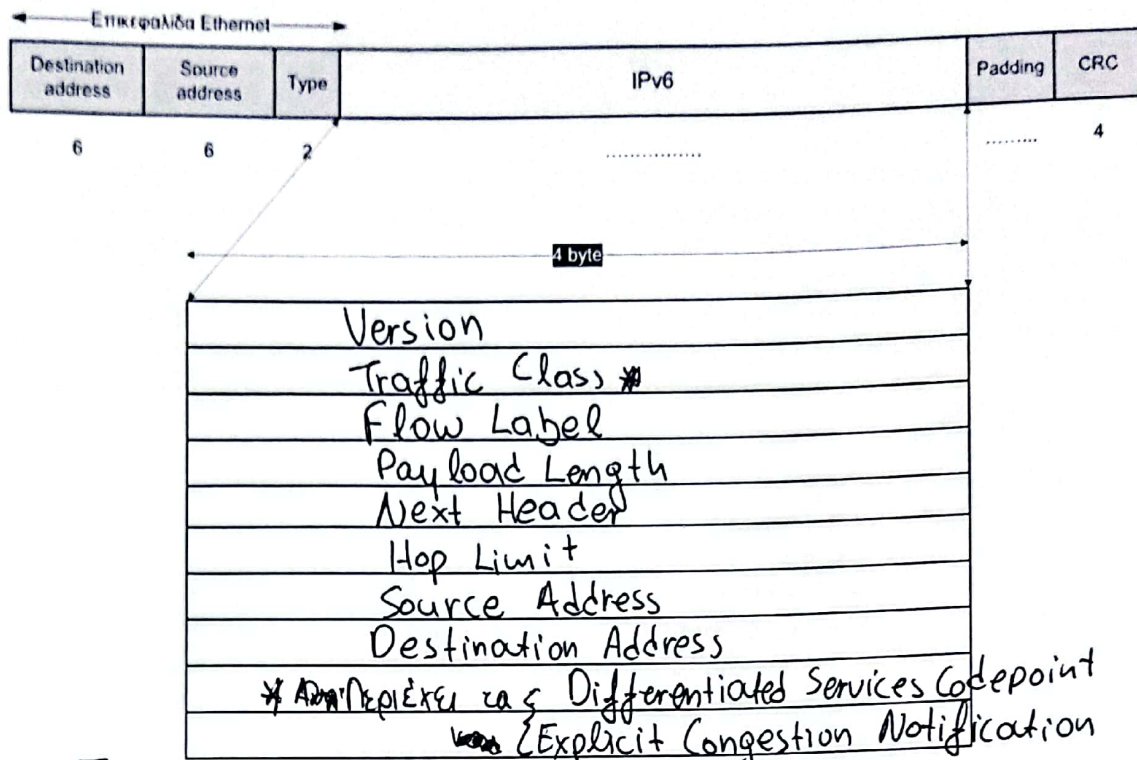 Επικεφαλίδα Ethernet
Destination address
Source address
Type
IPv6
Padding
CRC
6
6
2
................
.........
4
4 byte
Version
Traffic Class *
Flow Label
Payload Length
Next Header
Hop Limit
Source Address
Destination Address
* Περιέχει τα { Differentiated Services Codepoint
{ Explicit Congestion Notification